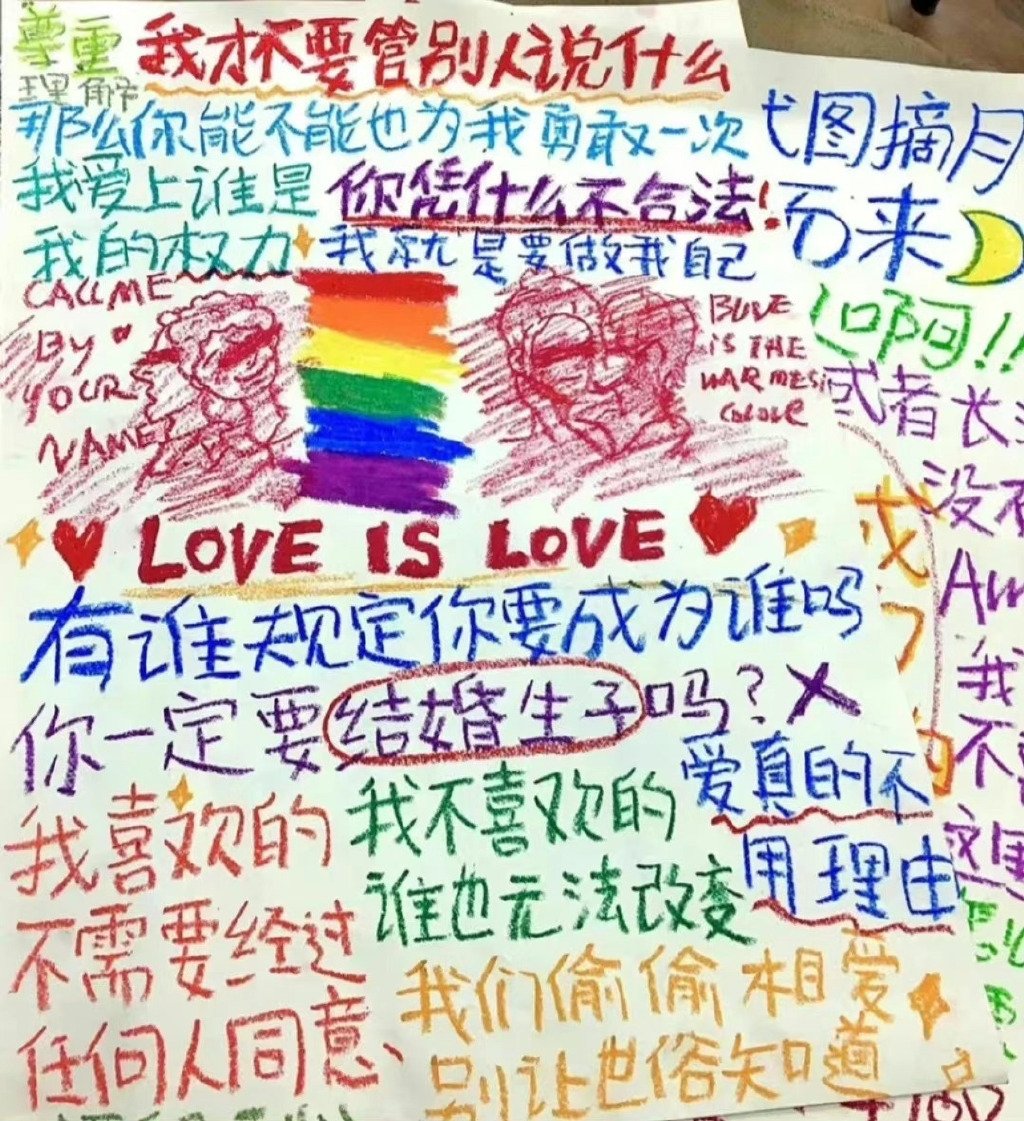 尊重
理解
我才不要管别人说什么
那么你能不能也为我勇敢一次
我爱上谁是
我的权力
你凭什么不合法!
我就是要做我自己
图摘月
而来
啊!!
或者长
没不
CALL ME
BY
YOUR
NAME
BLUE
IS THE
WARMEST
COLOUR
LOVE IS LOVE
有谁规定你要成为谁吗
你一定要结婚生子吗?
我喜欢的
不需要经过
任何人同意
我不喜欢的
谁也无法改变
爱真的不
用理由
我们偷偷相爱
别让世俗知道
我
不
这里